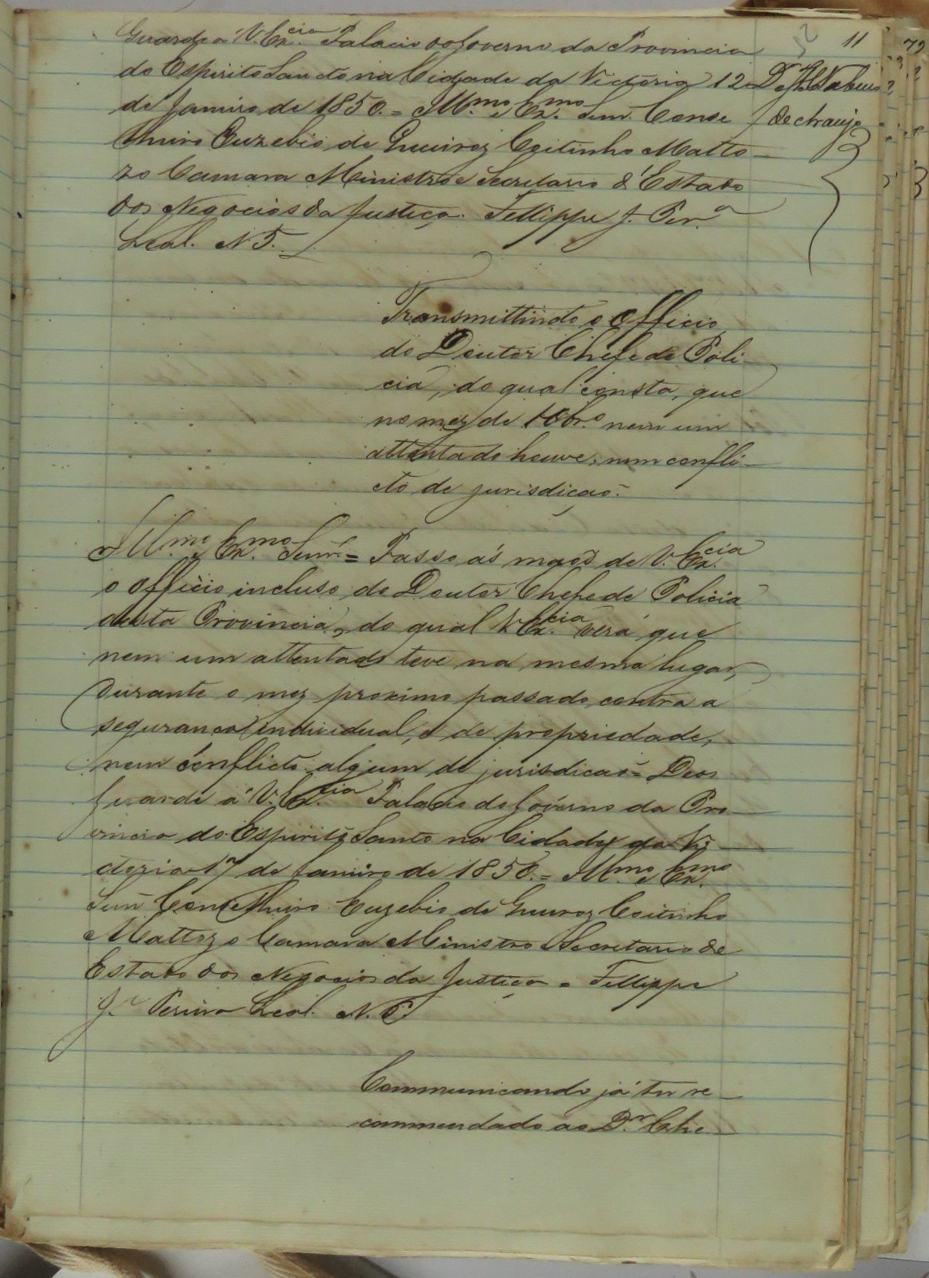 11
Guarde a V. Ex.cia Palacio do Governo da Provincia
do Espirito Sancto na Cidade da Victoria 12
de Janeiro de 1850. = Ill.mo e Ex.mo Senr. Conse
lheiro Euzebio de Queiroz Coitinho Matto
zo Camara Ministro e Secretario d'Estado
dos Negocios da Justiça. Fellippe J. Per.a
Leal. N 5.
de Araujo
Transmittindo o Officio
do Doutor Chefe de Poli
cia, do qual consta, que
no mez de 10br.o nem um
attentado houve, nem confli
cto de jurisdição.
Ill.mo e Ex.mo Senr. = Passo ás maõs de V. Ex.cia
o officio incluso do Doutor Chefe de Policia
desta Provincia, do qual V. Ex.cia verá que
nem um attentado teve na mesma lugar,
durante o mez proximo passado contra a
segurança individual, e de propriedade,
nem conflicto algum de jurisdicaõ = Deos
Guarde á V. Ex.cia Palacio do Governo da Pro
vincia do Espirito Santo na Cidade da Vi
ctoria 17 de Janeiro de 1850. = Ill.mo e Ex.mo
Senr. Conselheiro Euzebio de Queiroz Coitinho
Mattozo Camara Ministro Secretario de
Estado dos Negocios da Justiça = Fellippe
J.e Pereira Leal. N. 6
Communicando já ter re
commendado ao D.r Che